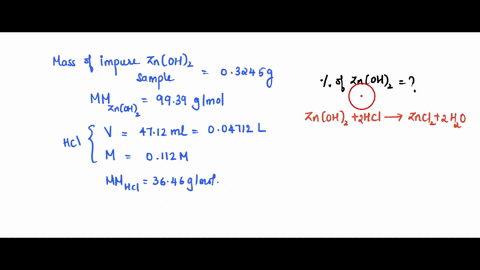 Mass of impure Zn(OH)₂ sample = 0.3245g
MM Zn(OH)₂ = 99.39 g/mol
HCl { V = 47.12 ml = 0.04712 L
M = 0.112 M
MM HCl = 36.46 g/mol.
% of Zn(OH)₂ = ?
Zn(OH)₂ + 2HCl → ZnCl₂ + 2H₂O